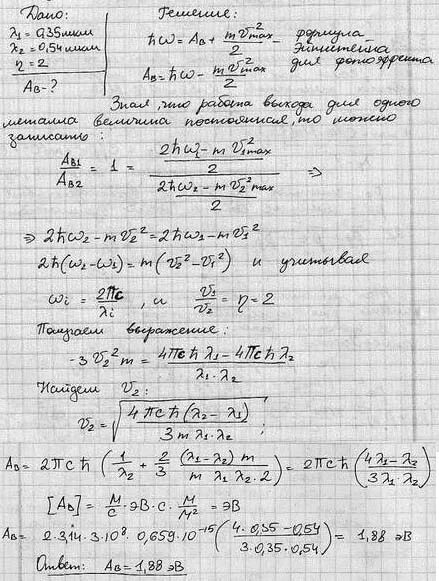 Дано:
λ₁ = 0,35 мкм
λ₂ = 0,54 мкм
η = 2
A_B - ?
Решение:
ħω = A_B + mv²max/2 - формула Эйнштейна для фотоэффекта
A_B = ħω - mv²max/2
Зная, что работа выхода для одного
металла величина постоянная, то можно
записать:
A_B1/A_B2 = 1 = ((2ħω₁ - mv₁²max)/2)/((2ħω₂ - mv₂²max)/2) ⇒
⇒ 2ħω₂ - mv₂² = 2ħω₁ - mv₁²
2ħ(ω₂-ω₁) = m(v₂² - v₁²) и учитывая
ωᵢ = 2πc/λᵢ, и v₁/v₂ = η = 2
Получаем выражение:
-3v₂²m = (4πcħλ₁ - 4πcħλ₂)/(λ₁·λ₂)
Найдем v₂:
v₂ = √(4πcħ(λ₂ - λ₁)/(3mλ₁·λ₂));
A_B = 2πcħ(1/λ₂ + 2/3 (λ₁-λ₂)m/(mλ₁λ₂·2)) = 2πcħ((4λ₁-λ₂)/(3λ₁λ₂))
[A_B] = м/с · эВ·с · м/м² = эВ
A_B = 2·3,14·3·10⁸·0,659·10⁻¹⁵((4·0,35-0,54)/(3·0,35·0,54)) = 1,88 эВ
Ответ: A_B = 1,88 эВ